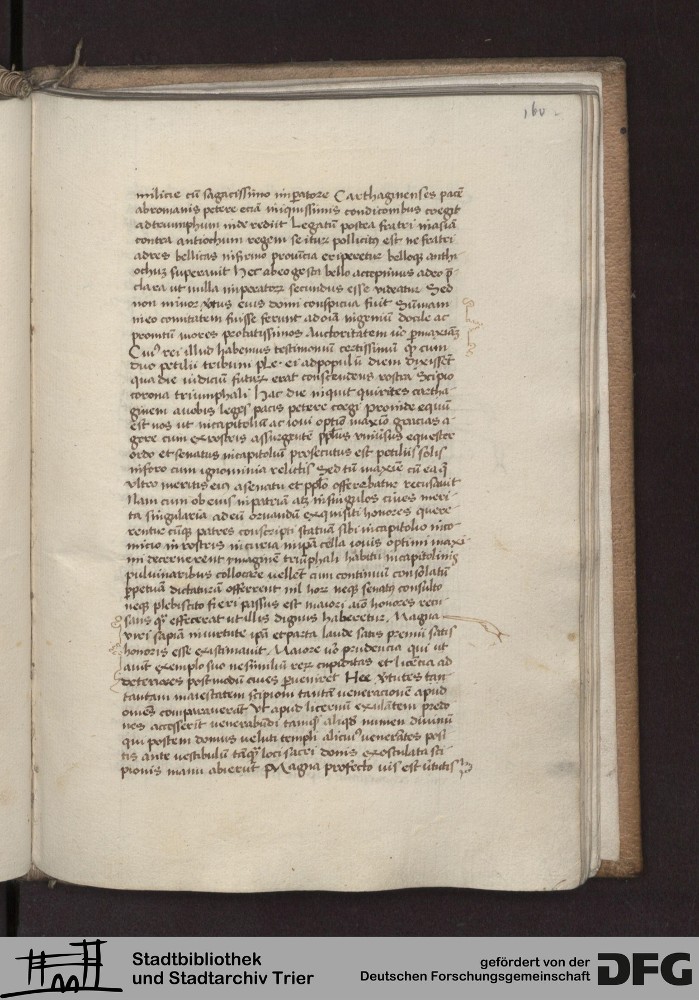 160
milicie cū sagacissimo impatore Carthaginenses pacē
abromanis petere eciā iniquissimis condicionibus coegit
ad triumphum inde rediit Legatū postea fratri in asiā
contra antiochum regem se itur pollicitꝰ est ne fratri
ad res bellicas infirmo prouīcia eriperetur belloqꝫ anthi
ochuꝫ superauit Hec ab eo gesta bello accepimus adeo p̄
clara ut nulla imperatorꝫ secundus esse videatur Sed
non minor v̄tus eius domi conspicua fuit Sūmam
in eo comitatem fuisse ferunt ad oīa ingeniū docile ac
promtū mores probatissimos Auctoritatem ūo pmaxiāꝫ
Cuiꝰ rei illud habemus testimoniū certissimū qꝫ cum
duo petilii tribuni ple. ei ad populū diem dixissēt
qua die iudiciū futurꝫ erat conscendens rostra Scipio
corona triumphali Hac die inquit quirites cartha
ginem a uobis leges pacis petere coegi proinde equū
est nos ut in capitoliū ac ioui optīo maxīo gracias a
gere cum ex rostris assurgentē ppl̄us vniūsus equester
ordo et senatus in capitoliū prosecutus est petiliis solis
in foro cum ignominia relictis Sed tū maxīe cū ea q̄
vltro meritis eiꝰ a senatu et ppl̄o offerebātur recusauit
Nam cum ob eius in patriā atqꝫ in singulos ciues meri
ta singularia ad eū ornandū exquisiti honores quere
rentur cūqꝫ patres conscripti statuā sibi in capitolio in co
micio in rostris in curia in ip̄a cella iouis optimi maxi
mi decernerent ymaginē triūphali habitu in capitolinis
puluinaribus collocare vellent cum continuū consōlatū
ppetuā dictaturā offerrent nil horꝫ neqꝫ senatꝰ consulto
neqꝫ plebiscito fieri passus est maiori aīo honores recu
sans qꝫ effecerat ut illis dignus haberetur. Magna
viri sapiā in uirtute ip̄a et parta laude satis premiī satis
honoris esse existimauit. Maiore ūo prudencia qui ut
auit exemplo suo ne similiū rerꝫ cupiditas et licētia ad
deteriores postmodū ciues pueniret Hee v̄tutes tan
tantam maiestatem scipioni tantā veneracionē apud
omēs comparauerāt Vt apud licernū exulātem predo
nes accesserīt venerabūdi tamqꝫ aliqd numen diuinū
qui postem domus veluti templi alicuiꝰ venerātes posi
tis ante vestibulū tāqꝫ loci sacri donis exosculata sci
pionis manu abierūt Magna profecto uis est v̄tutis
Stadtbibliothek
und Stadtarchiv Trier
gefördert von der
Deutschen Forschungsgemeinschaft
DFG